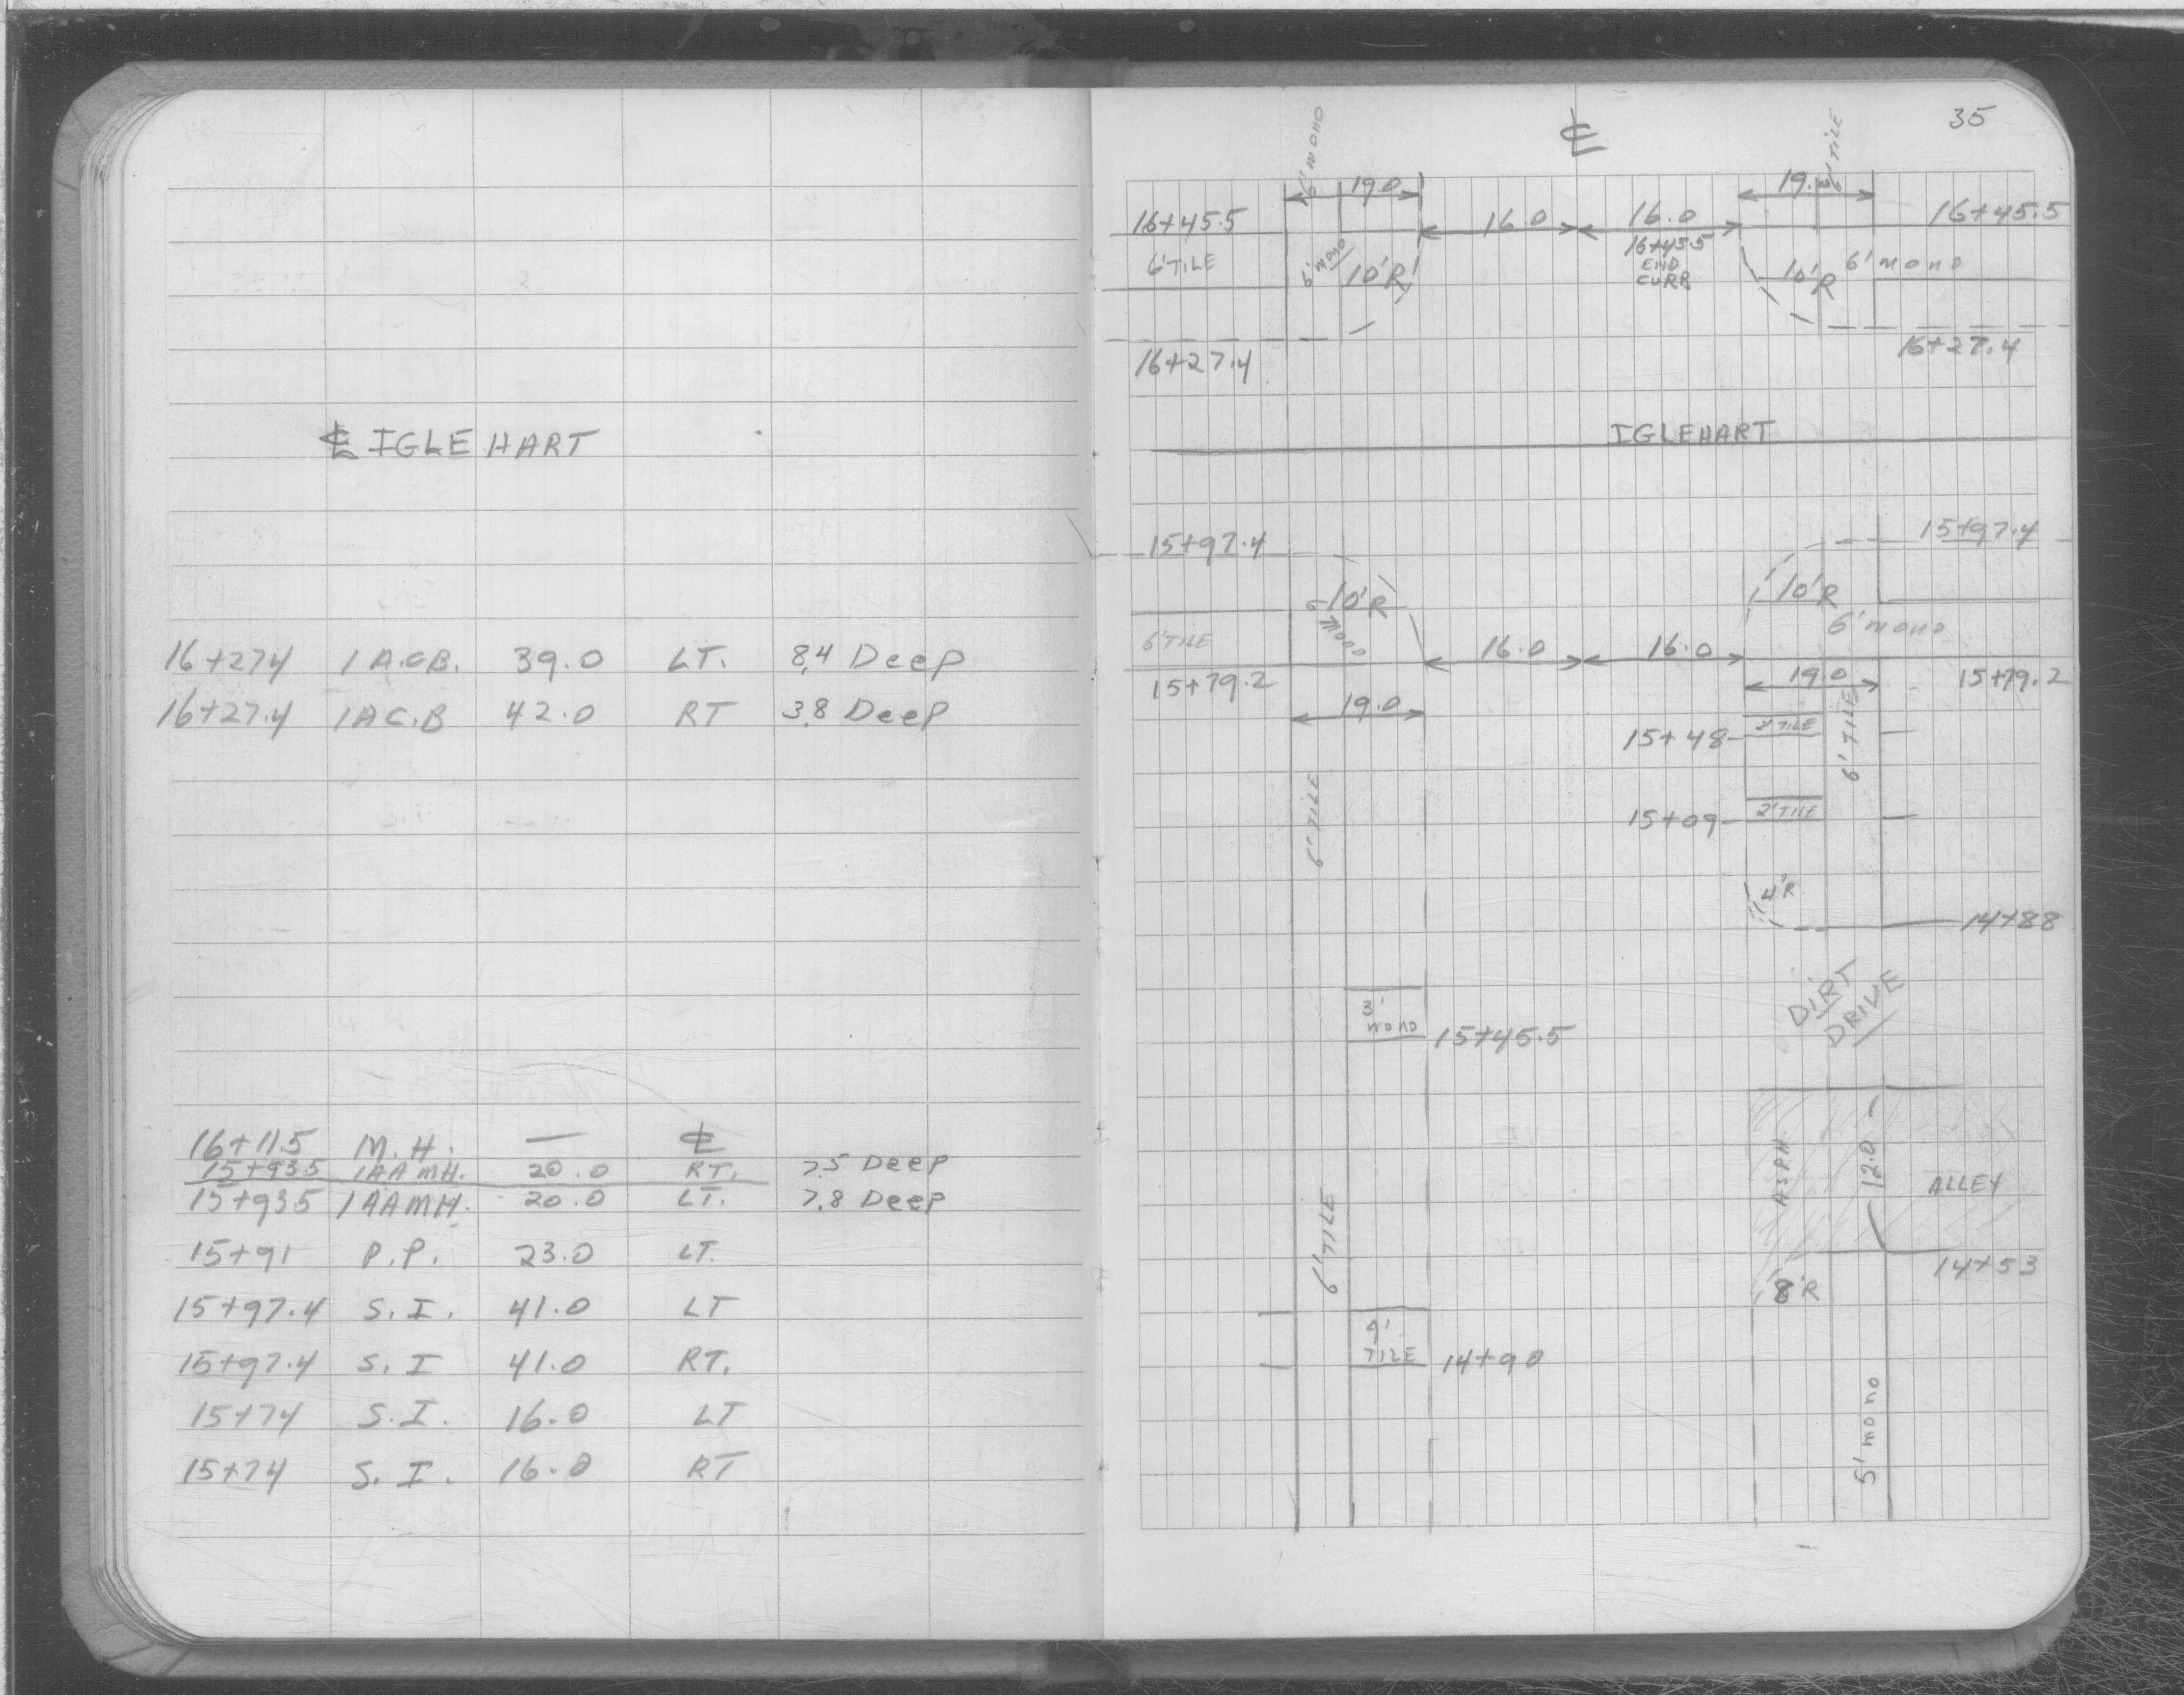 ℄ IGLEHART
16+27.4 1 A.C.B. 39.0 LT. 8.4 Deep
16+27.4 1 A C.B 42.0 RT 3.8 Deep
16+11.5 M.H. — ℄
15+93.5 1AA MH. 20.0 RT. 7.5 Deep
15+93.5 1AA MH. 20.0 LT. 7.8 Deep
15+91 P.P. 23.0 LT.
15+97.4 S.I. 41.0 LT
15+97.4 S.I 41.0 RT.
15+74 S.I. 16.0 LT
15+74 S.I. 16.0 RT
35
6' mono ℄ 6' TILE
19.0 19.
16+45.5 16.0 16.0 16+45.5
16+45.5
END
CURB
6' TILE 6' mono 10'R 10'R 6' mono
16+27.4 16+27.4
IGLEHART
15+97.4 15+97.4
10'R 10'R
6' TILE 6' mono 6' mono
16.0 16.0
15+79.2 19.0 15+79.2
19.0
15+48 2' TILE 6' TILE
6' TILE
15+09 2' TILE
4'R
14+88
DIRT
DRIVE
3'
mono 15+45.5
ASPH. 12.0 ALLEY
6' TILE
14+53
8'R
4'
TILE 14+90
5' mono